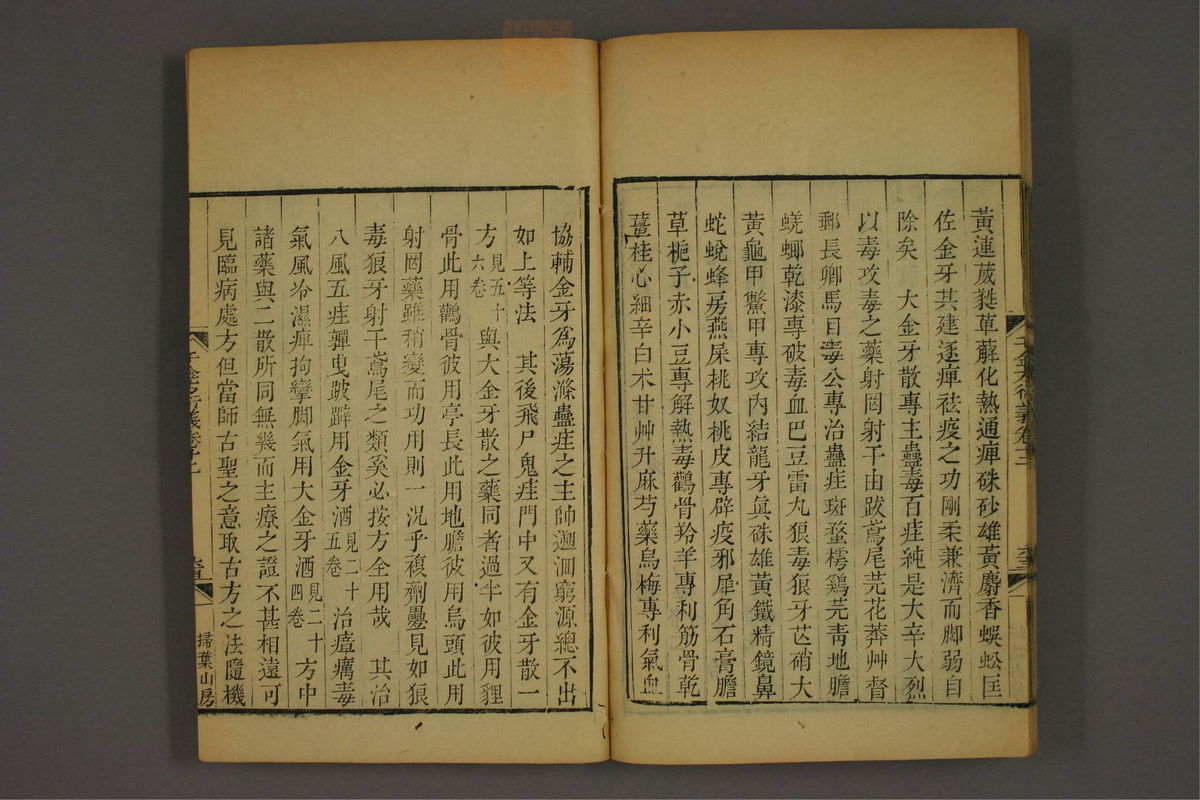 黃連葳蕤萆薢化熱通痺硃砂雄黃麝香蜈蚣匡
佐金牙其建逐痺祛疫之功剛柔兼濟而脚弱自
除矣　大金牙散專主蠱毒百疰純是大辛大烈
以毒攻毒之藥射罔射干由跋鳶尾芫花莽艸督
郵長卿馬目毒公專治蠱疰斑蝥樗鷄芫青地膽
蜣蜋乾漆專破毒血巴豆雷丸狼毒狼牙芒硝大
黃龜甲鱉甲專攻內結龍牙眞硃雄黃鐵精鏡鼻
蛇蛻蜂房燕屎桃奴桃皮專辟疫邪犀角石膏膽
草梔子赤小豆專解熱毒鸛骨羚羊專利筋骨乾
薑桂心細辛白朮甘艸升麻芍藥烏梅專利氣血
千金方衍義卷十二
協輔金牙爲蕩滌蠱疰之主帥遡洄窮源總不出
如上等法　其後飛尸鬼疰門中又有金牙散一
方見五十六卷與大金牙散之藥同者過半如彼用貍
骨此用鸛骨彼用亭長此用地膽彼用烏頭此用
射罔藥雖稍變而功用則一況乎複劑疊見如狼
毒狼牙射干鳶尾之類奚必按方全用哉　其治
八風五疰嚲曳跛躃用金牙酒見二十五卷治瘴癘毒
氣風冷濕痺拘攣脚氣用大金牙酒見二十四卷方中
諸藥與二散所同無幾而主療之證不甚相遠可
見臨病處方但當師古聖之意取古方之法隨機
千金方衍義卷十二
掃葉山房